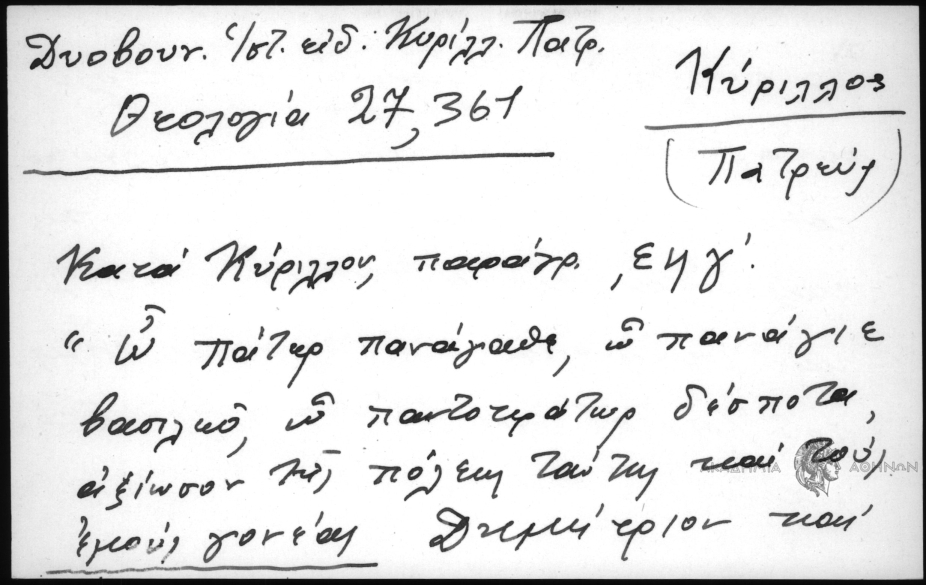 Δυοβουν. Ἱστ. εἰδ. Κυρίλλ. Πατρ.
Θεολογία 27, 361
Κύριλλος
(Πατρεύς)
Κατά Κύριλλον, παράγρ. ͵εηγ΄.
“ Ὦ Πάτερ πανάγαθε, ὦ πανάγιε
βασιλεῦ, ὦ παντοκράτωρ δέσποτα,
ἀξίωσον τῆς πόλεως ταύτης καί τούς
ἐμούς γονέας Δημήτριον καί
ΑΚΑΔΗΜΙΑ ΑΘΗΝΩΝ